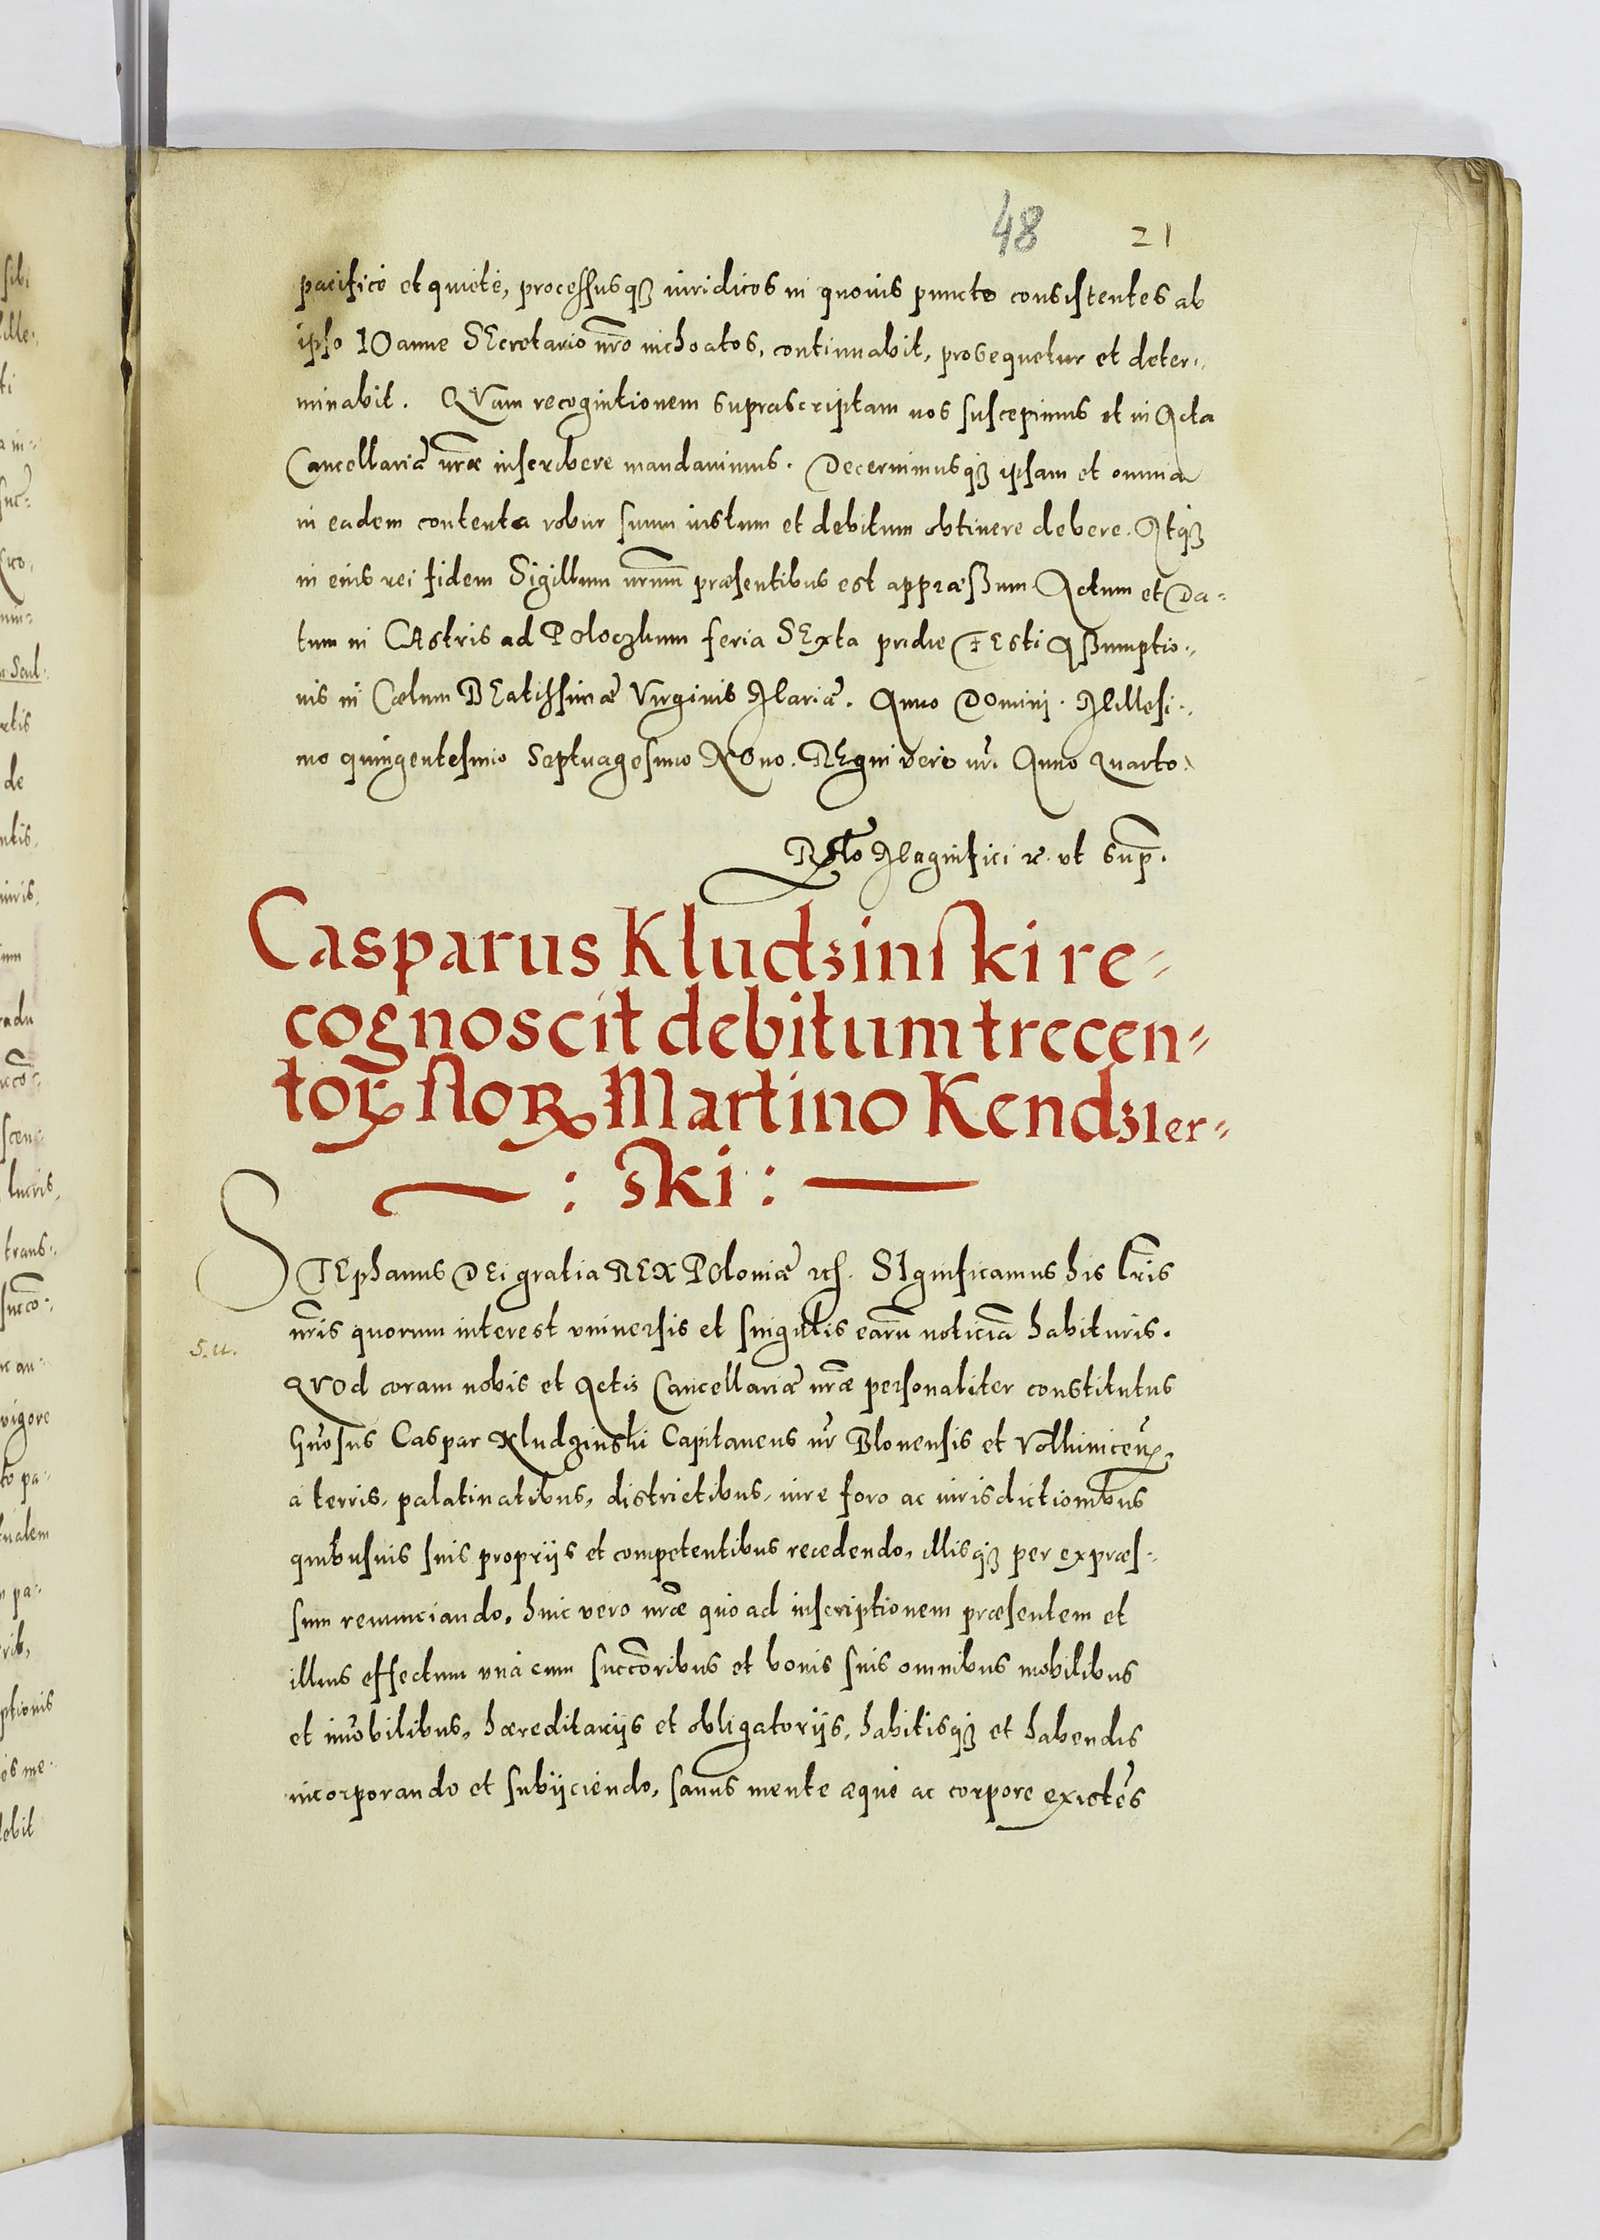 48 21
pacificé et quiété, processusq3 iuridicos in quouis puncto consistentes ab
ipso IOanne SEcretario nro inchoatos, continuabit, prosequetur et deter-
minabit. QVam recognitionem suprascriptam nos suscepimus et in Acta
Cancellariæ nræ inscribere mandauimus. Decernimusq3 ipsam et omnia
in eadem contenta robur suum iustum et debitum obtinere debere. Atq3
in eius rei fidem Sigillum nrum præsentibus est appræssum Actum et Da-
tum in CAstris ad Poloczkum feria SExta pridie FEsti Assumptio-
nis in Cœlum BEatissimæ Virginis Mariæ. Anno DOmini. Millesi-
mo quingentesimo Septuagesimo NOno. REgni vero nr. Anno Quarto.
Rlatio Magnifici &. vt sup.
Casparus Kludzinski re-
cognoscit debitum trecen-
torꝝ florꝝ Martino Kendzier-
: ski :
STEphanus DEi gratia REX POloniæ &c. SIgnificamus his Lris
nris quorum interest vniuersis et singulis earu noticia habituris.
QVOd coram nobis et Actis Cancellariæ nræ personaliter constitutus
S.U.
Gnosus Caspar Kludzinski Capitaneus nr Blonensis et
á terris, palatinatibus, districtibus, iure foro ac iurisdictionibus
quibusuis suis proprijs et competentibus recedendo, illisq3 per expræs-
sum renunciando, huic vero nræ quo ad inscriptionem præsentem et
illius effectum vná cum succoribus et bonis suis omnibus mobilibus
et imobilibus, hæreditarijs et obligatorijs, habitisq3 et habendis
incorporando et subijciendo, sanus mente æqué ac corpore existes